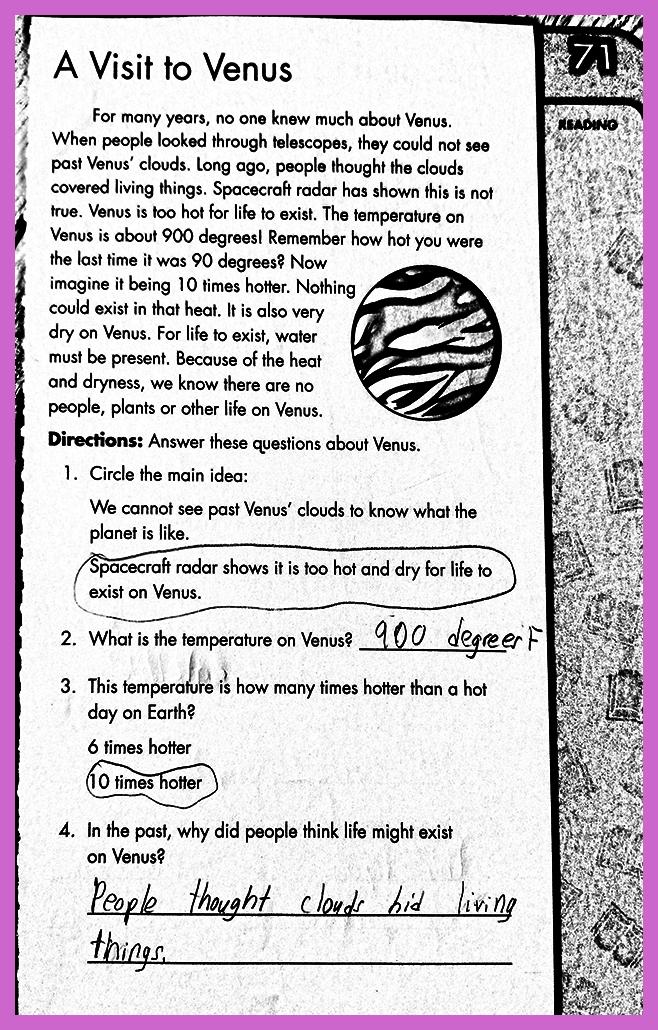 A Visit to Venus
71
READING
For many years, no one knew much about Venus.
When people looked through telescopes, they could not see
past Venus' clouds. Long ago, people thought the clouds
covered living things. Spacecraft radar has shown this is not
true. Venus is too hot for life to exist. The temperature on
Venus is about 900 degrees! Remember how hot you were
the last time it was 90 degrees? Now
imagine it being 10 times hotter. Nothing
could exist in that heat. It is also very
dry on Venus. For life to exist, water
must be present. Because of the heat
and dryness, we know there are no
people, plants or other life on Venus.
Directions: Answer these questions about Venus.
1. Circle the main idea:
We cannot see past Venus' clouds to know what the
planet is like.
Spacecraft radar shows it is too hot and dry for life to
exist on Venus.
2. What is the temperature on Venus? 900 degreer F
3. This temperature is how many times hotter than a hot
day on Earth?
6 times hotter
10 times hotter
4. In the past, why did people think life might exist
on Venus?
People thought clouds hid living
things.